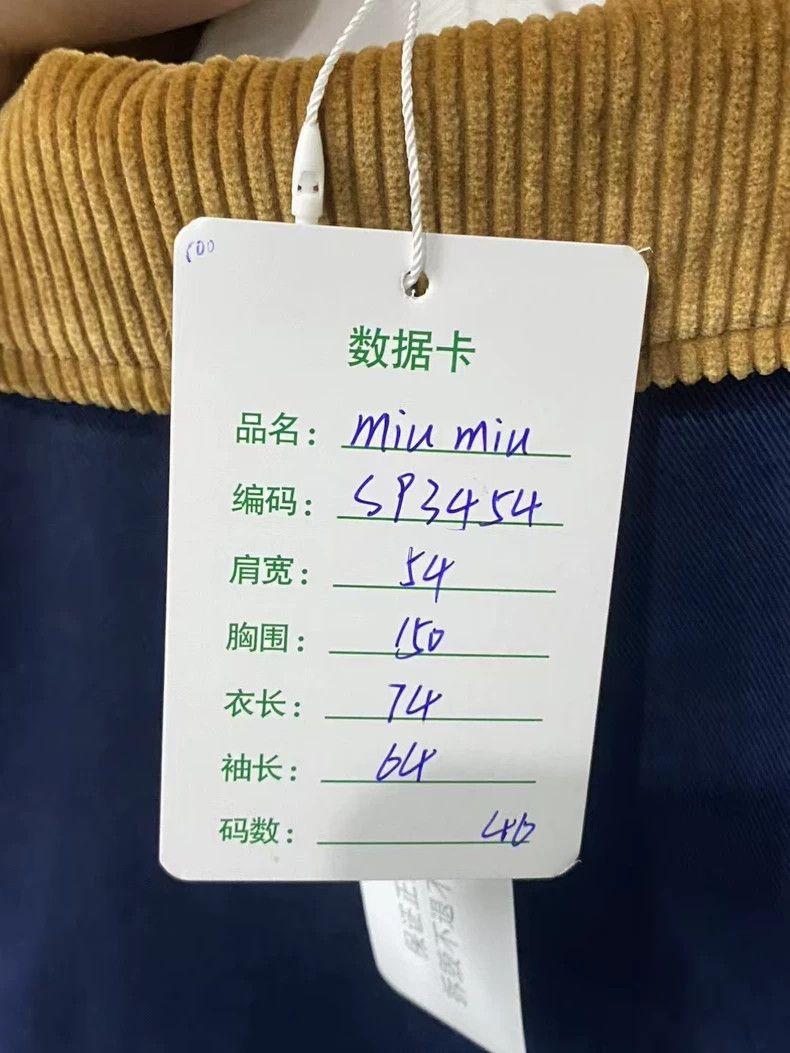 500
数据卡
品名: miu miu
编码: SP3454
肩宽: 54
胸围: 150
衣长: 74
袖长: 64
码数: 40
保证正
拆毁不退不